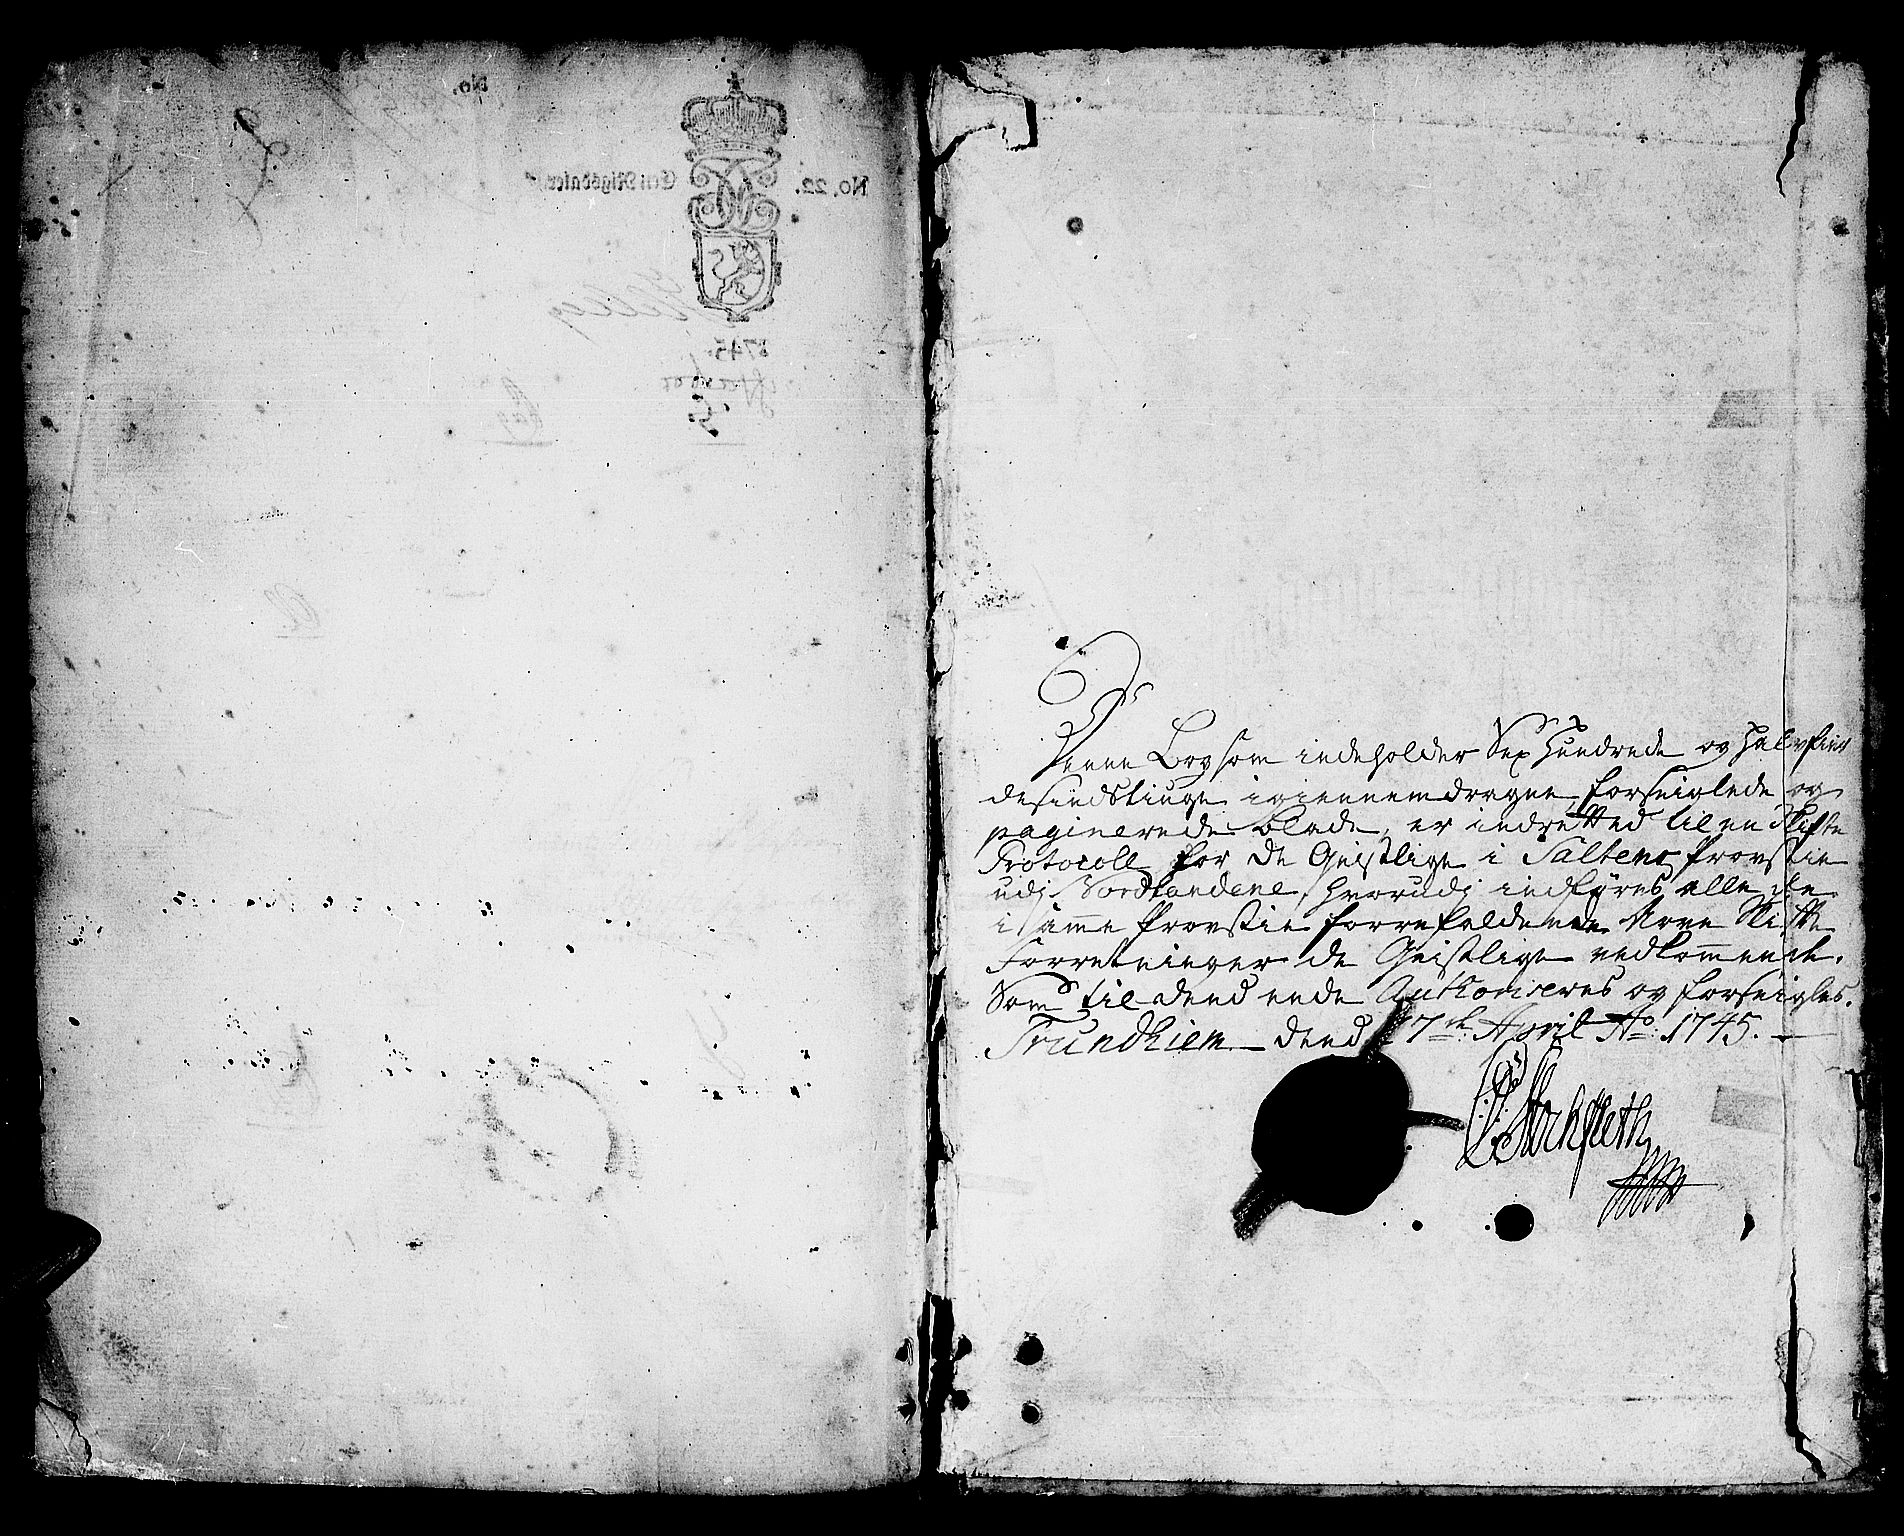 No.
No. 22. Een Rigsdaler
1745.
Denne Bog som indeholder Sex Hundrede og Halvfier
desindstiuge igiennemdragne, forseiglede og
paginerede blade, er indretted til en Skifte
Protocoll for de Geistlige i Saltens Provstie
udj Nordlandene, hvorudj indføres alle de
i samme Provstie forrefaldende Skifte
Forretninger de Geistlige vedkommende.
Som til dend ende Authoriseres og forseigles.
Trundhiem dend 17de April Ao 1745.
Stockfleth